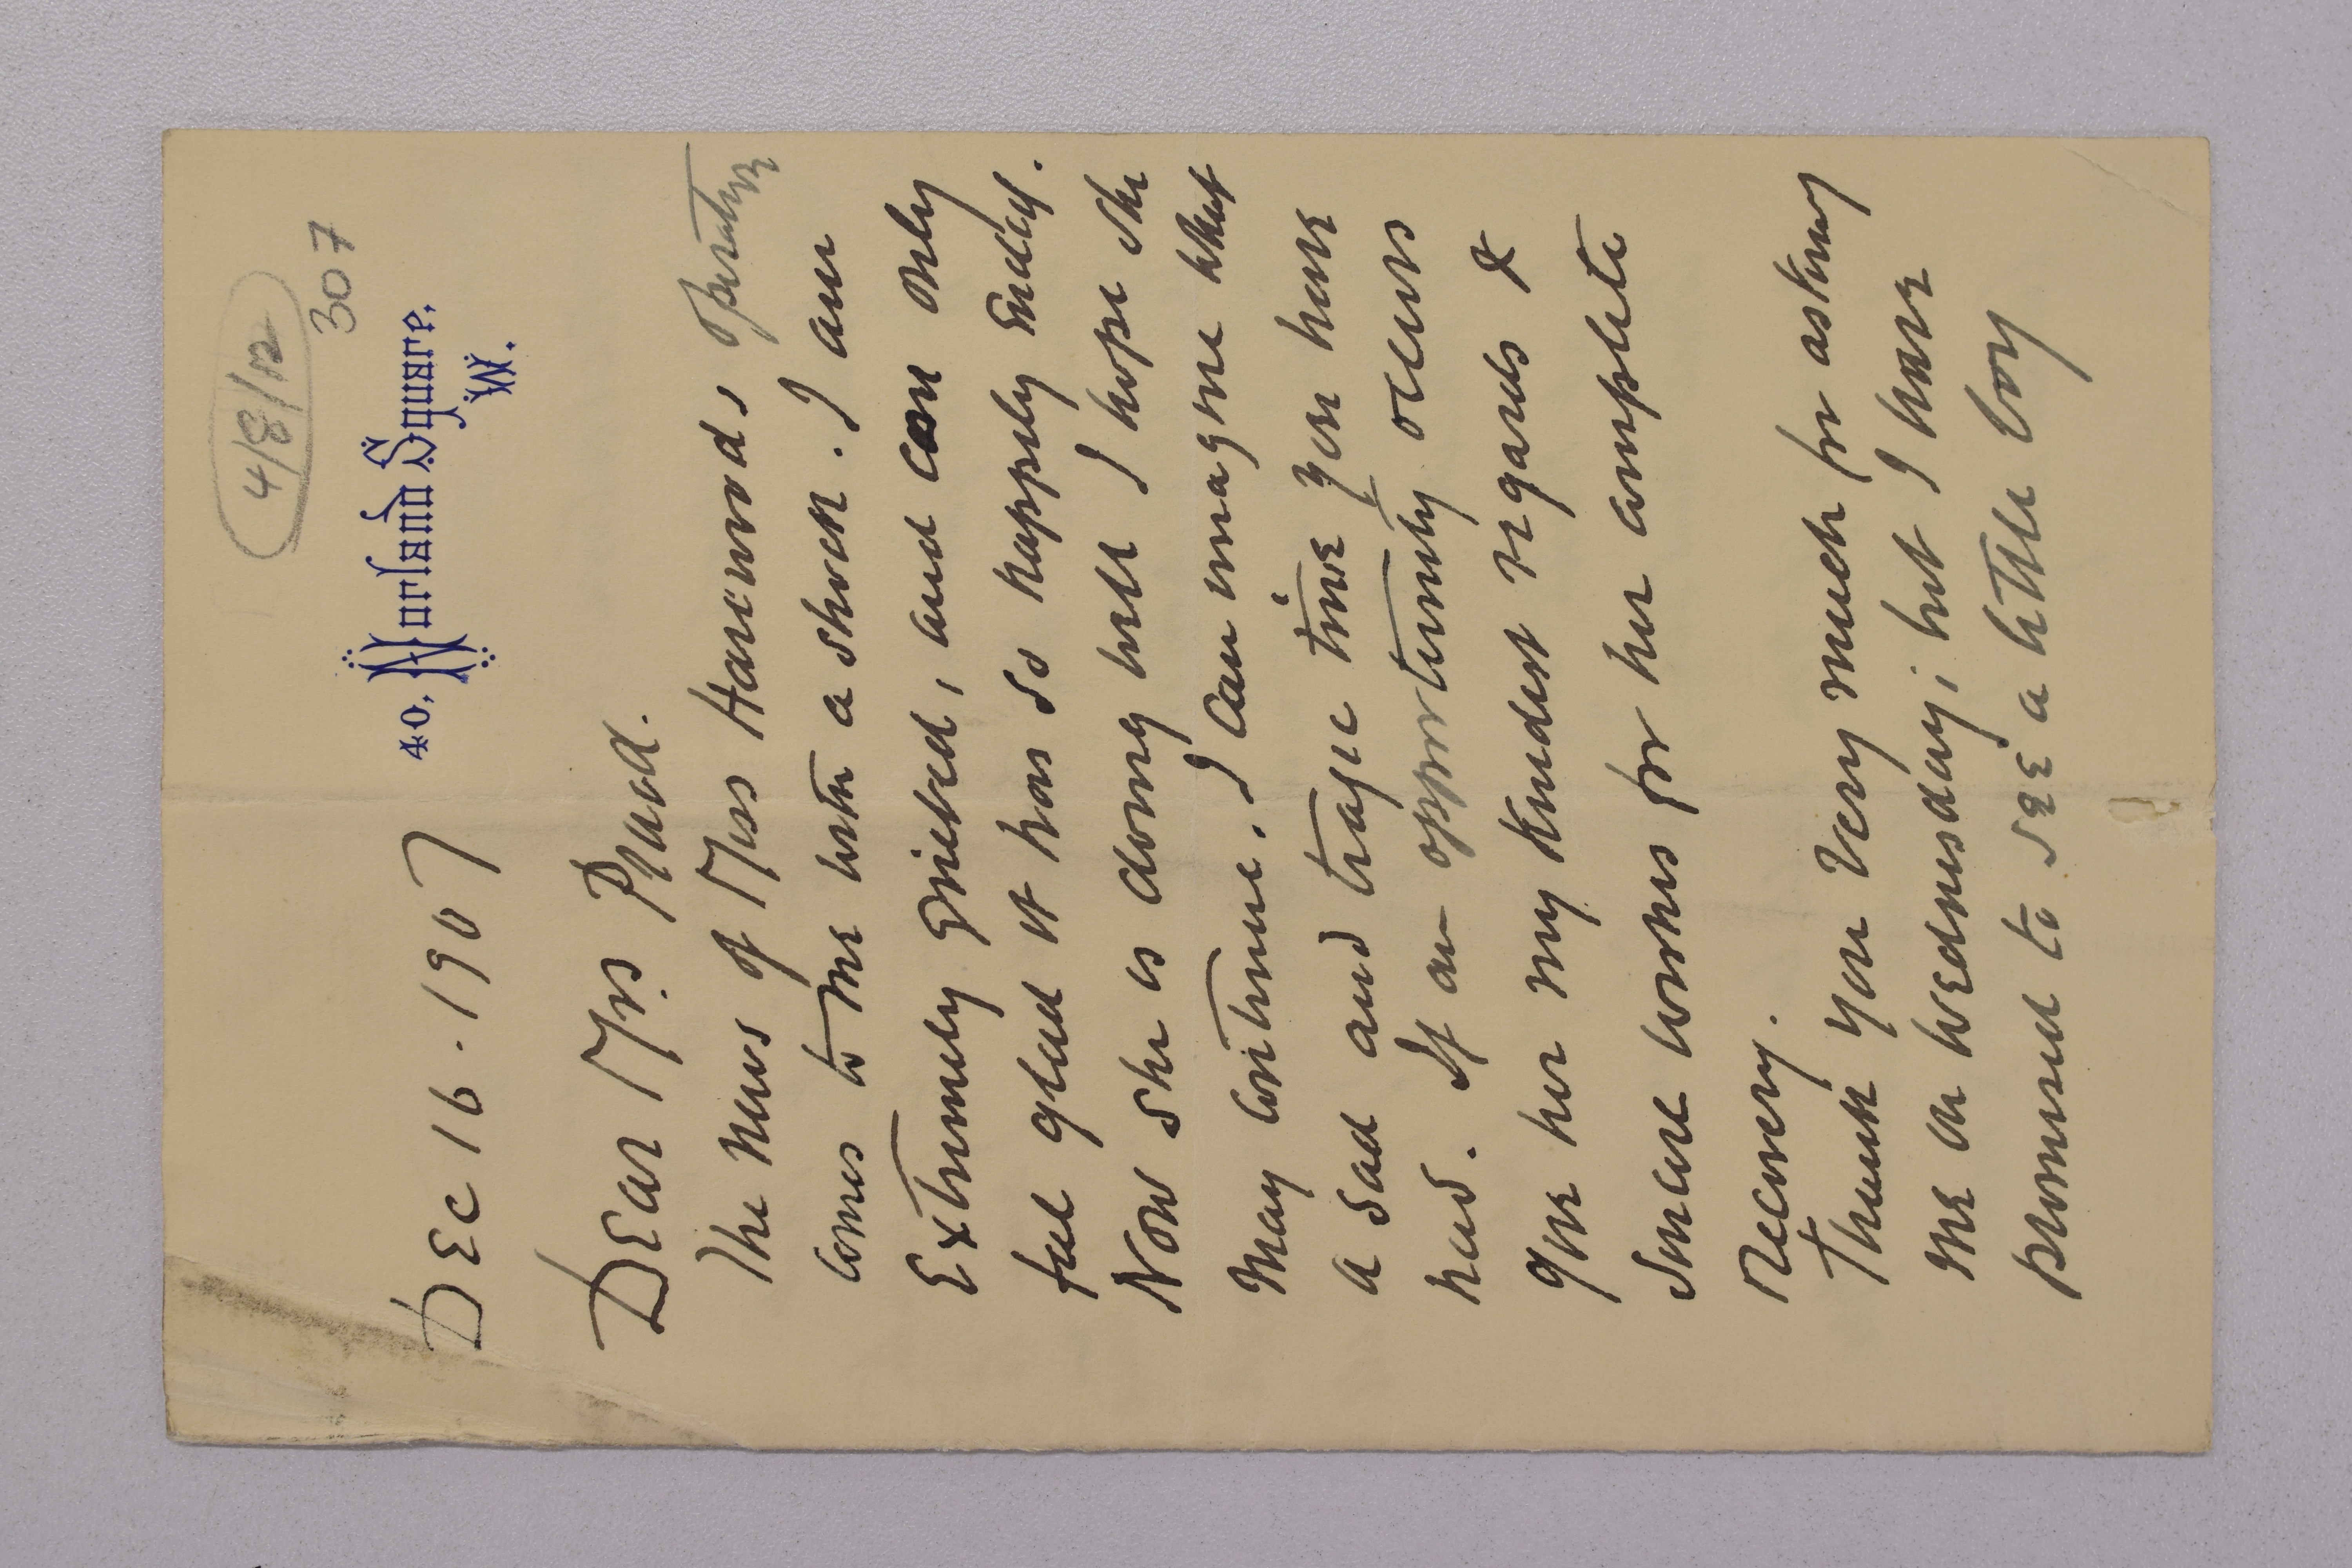 4/8/12
307
40, Norland Square,
W.
Dec 16. 1907
Dear Mrs. Pnull.
The news of Miss Harwoods operation
comes to me with a shock. I am
Extremely grieved, and can only
feel glad it has so happily Ended.
Now she is doing well I hope she
may continue. I can imagine what
a sad and tragic time you have
had. If an opportunity occurs
give her my kindest regards &
sincere wishes for her complete
recovery.
Thank you very much for asking
me on Wednesday; but I have
promised to see a little boy